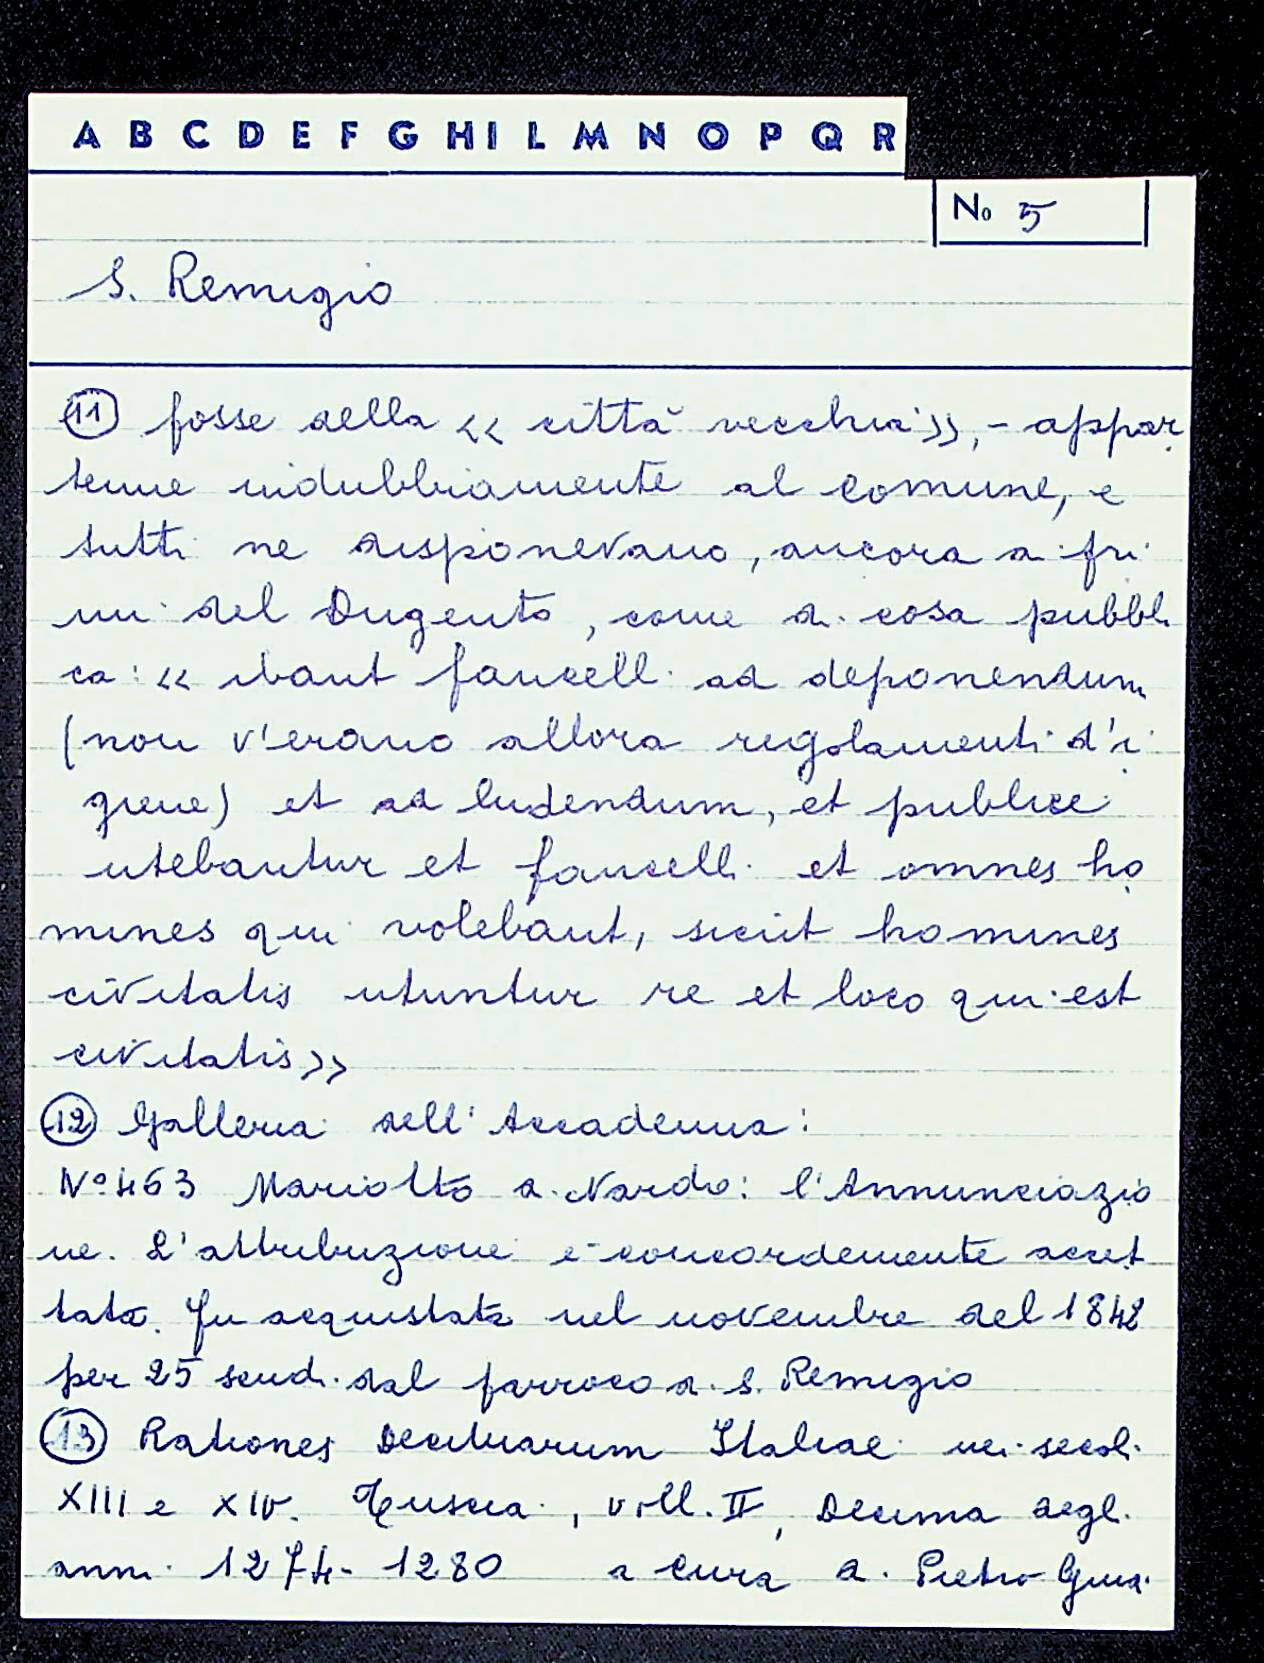 A B C D E F G H I L M N O P Q R
No 5
S. Remigio
11 fosse della << città vecchia>>, - appar
tenne indubbiamente al comune, e
tutti ne disponevano, ancora ai pri
mi del Dugento, come di cosa pubbli
ca: << ibant fancelli ad deponendum
(non v'erano allora regolamenti d'i
giene) et ad ludendum, et publice
utebantur et fancelli et omnes ho
mines qui volebant, sicut homines
civitatis utuntur re et loco qui est
civitatis>>
12 Galleria dell'Accademia:
N° 463 Mariotto di Nardo: l'Annunciazio
ne. L'attribuzione è concordemente accet
tata. Fu acquistata nel novembre del 1842
per 25 scudi dal parroco di S. Remigio
13 Rationes Decimarum Italiae nei secoli
XIII e XIV. Tuscia, voll. II, Decima degli
anni 1274-1280 a cura di Pietro Gui